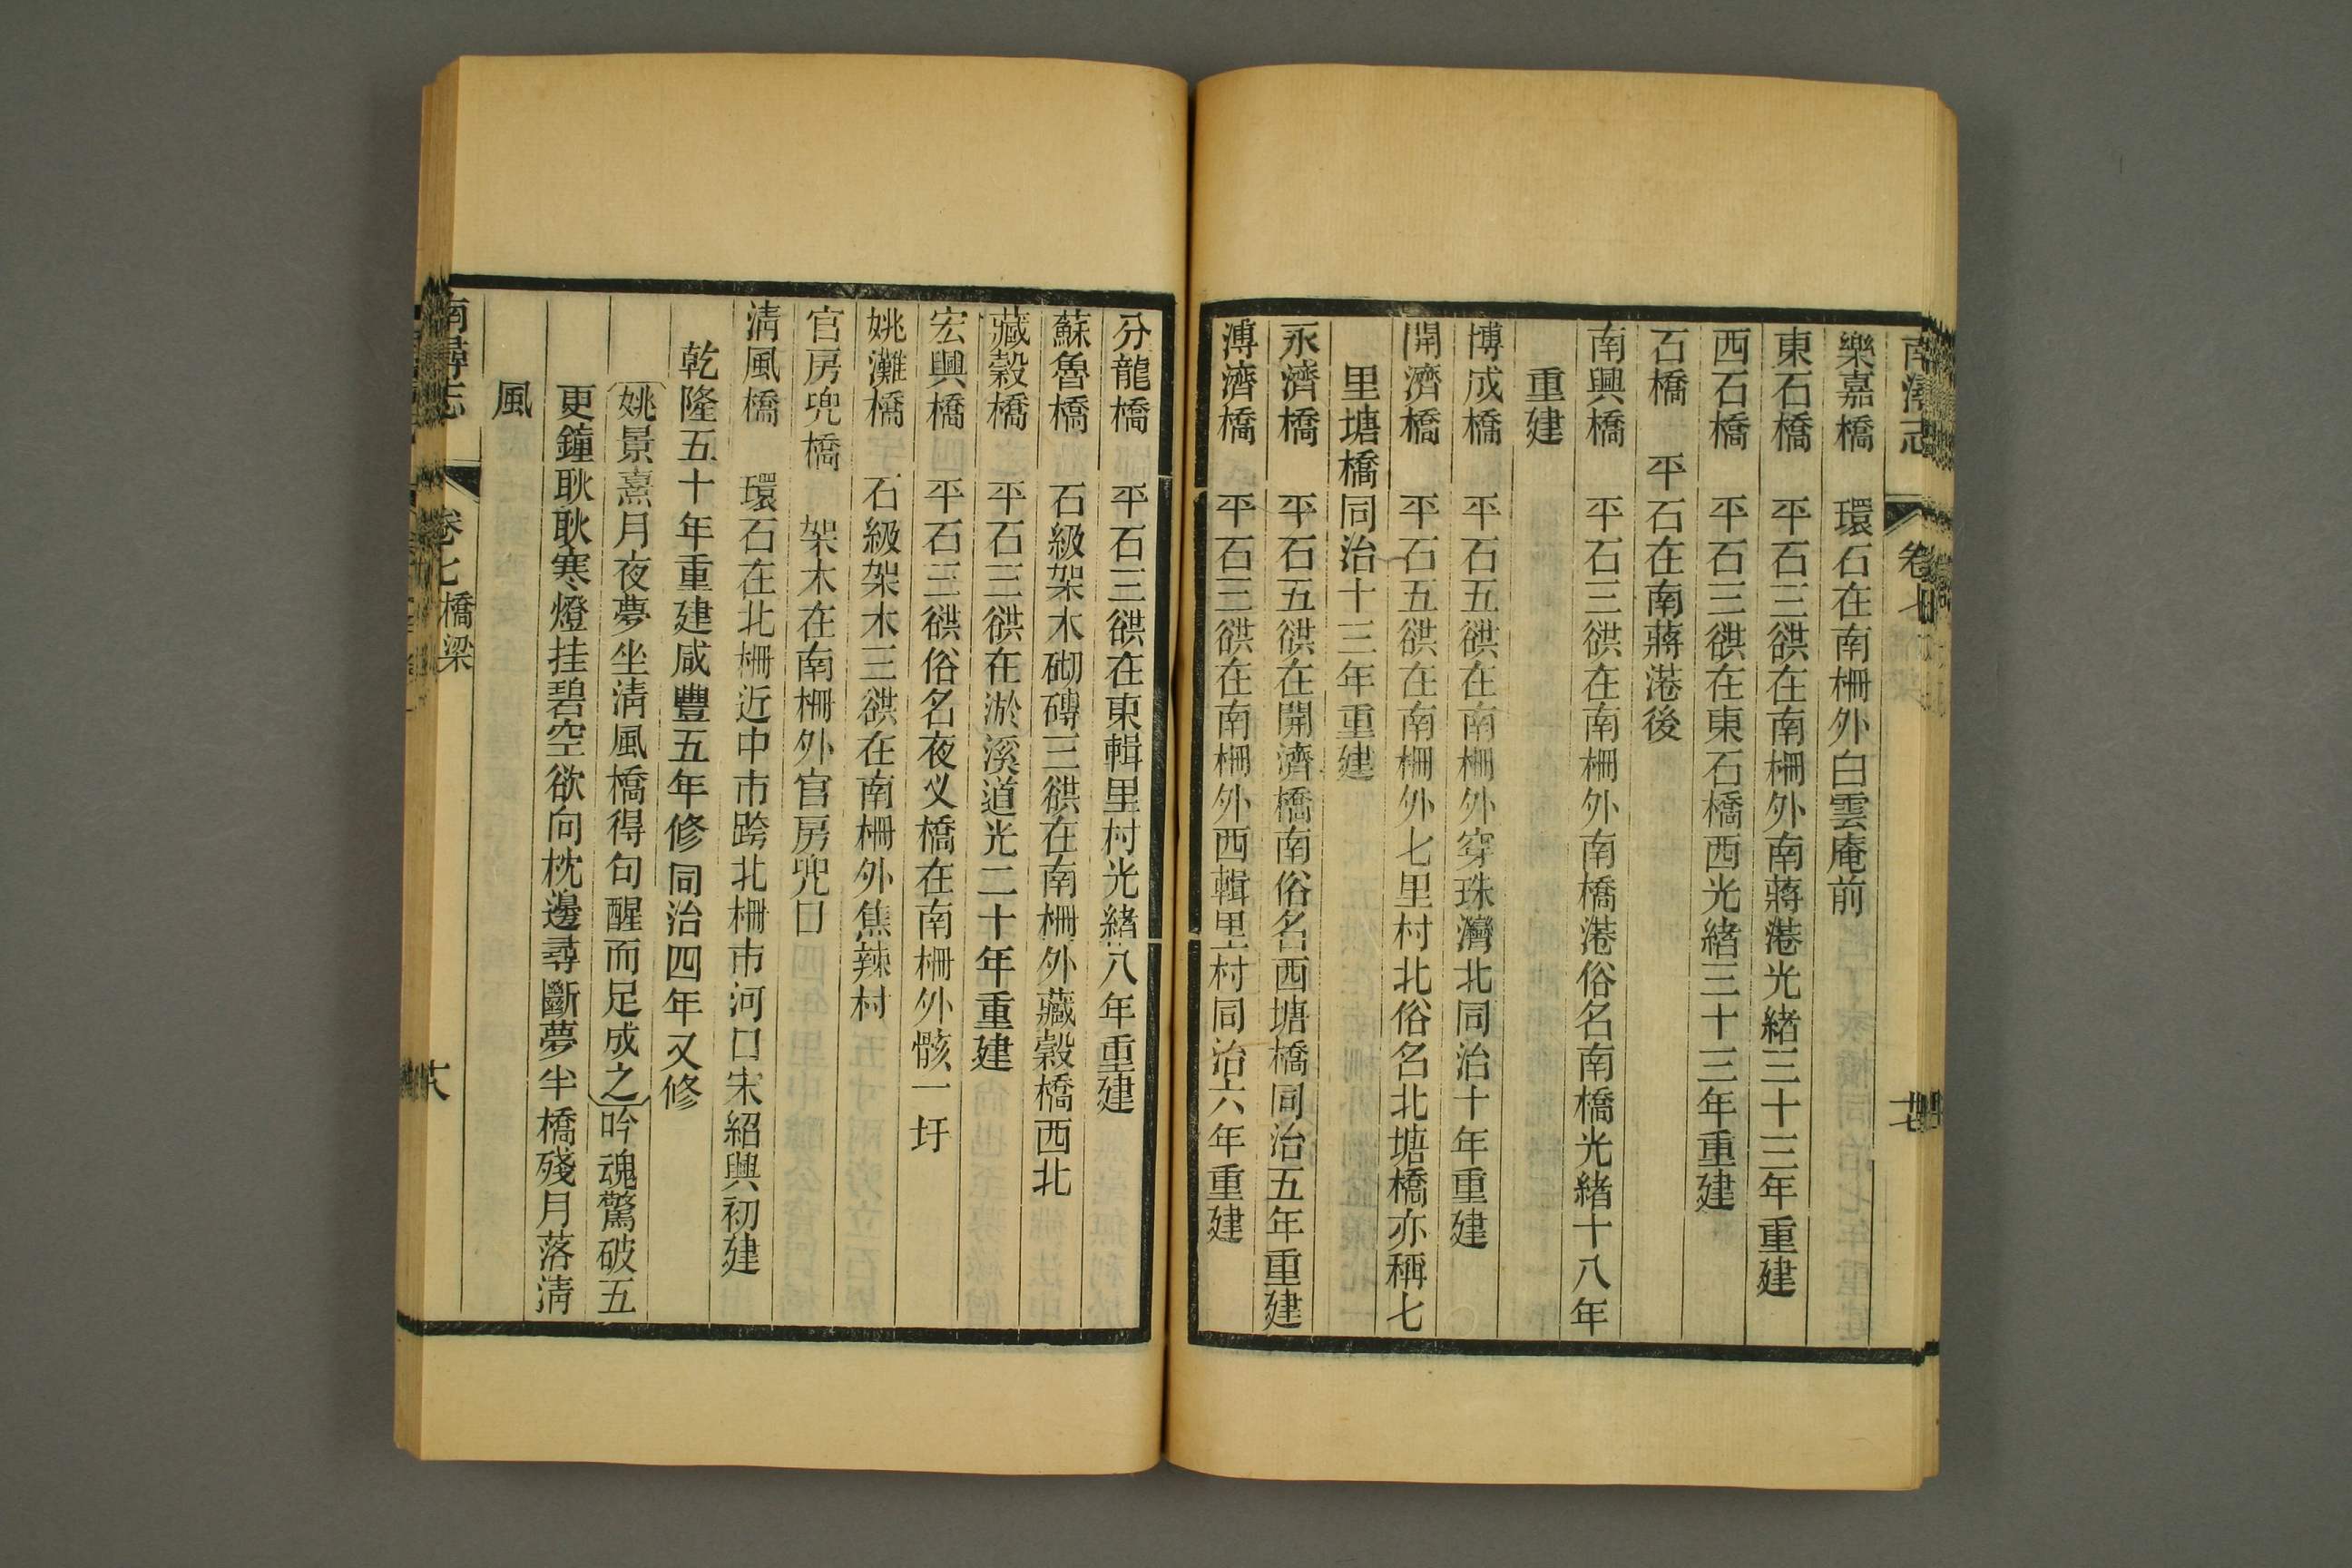 南潯志
卷七
十七
樂嘉橋　環石在南柵外白雲庵前
東石橋　平石三谼在南柵外南蔣港光緒三十三年重建
西石橋　平石三谼在東石橋西光緒三十三年重建
石橋　平石在南蔣港後
南興橋　平石三谼在南柵外南橋港俗名南橋光緒十八年
重建
博成橋　平石五谼在南柵外穿珠灣北同治十年重建
開濟橋　平石五谼在南柵外七里村北俗名北塘橋亦稱七
里塘橋同治十三年重建
永濟橋　平石五谼在開濟橋南俗名西塘橋同治五年重建
溥濟橋　平石三谼在南柵外西輯里村同治六年重建
分龍橋　平石三谼在東輯里村光緒八年重建
蘇魯橋　石級架木砌磚三谼在南柵外藏穀橋西北
藏穀橋　平石三谼在淤溪道光二十年重建
宏興橋　平石三谼俗名夜义橋在南柵外骸一圩
姚灘橋　石級架木三谼在南柵外焦辣村
官房兜橋　架木在南柵外官房兜口
清風橋　環石在北柵近中市跨北柵市河口宋紹興初建
乾隆五十年重建咸豐五年修同治四年又修
姚景熹月夜夢坐清風橋得句醒而足成之吟魂驚破五
更鐘耿耿寒燈挂碧空欲向枕邊尋斷夢半橋殘月落清
風
南潯志
卷七橋梁
十八